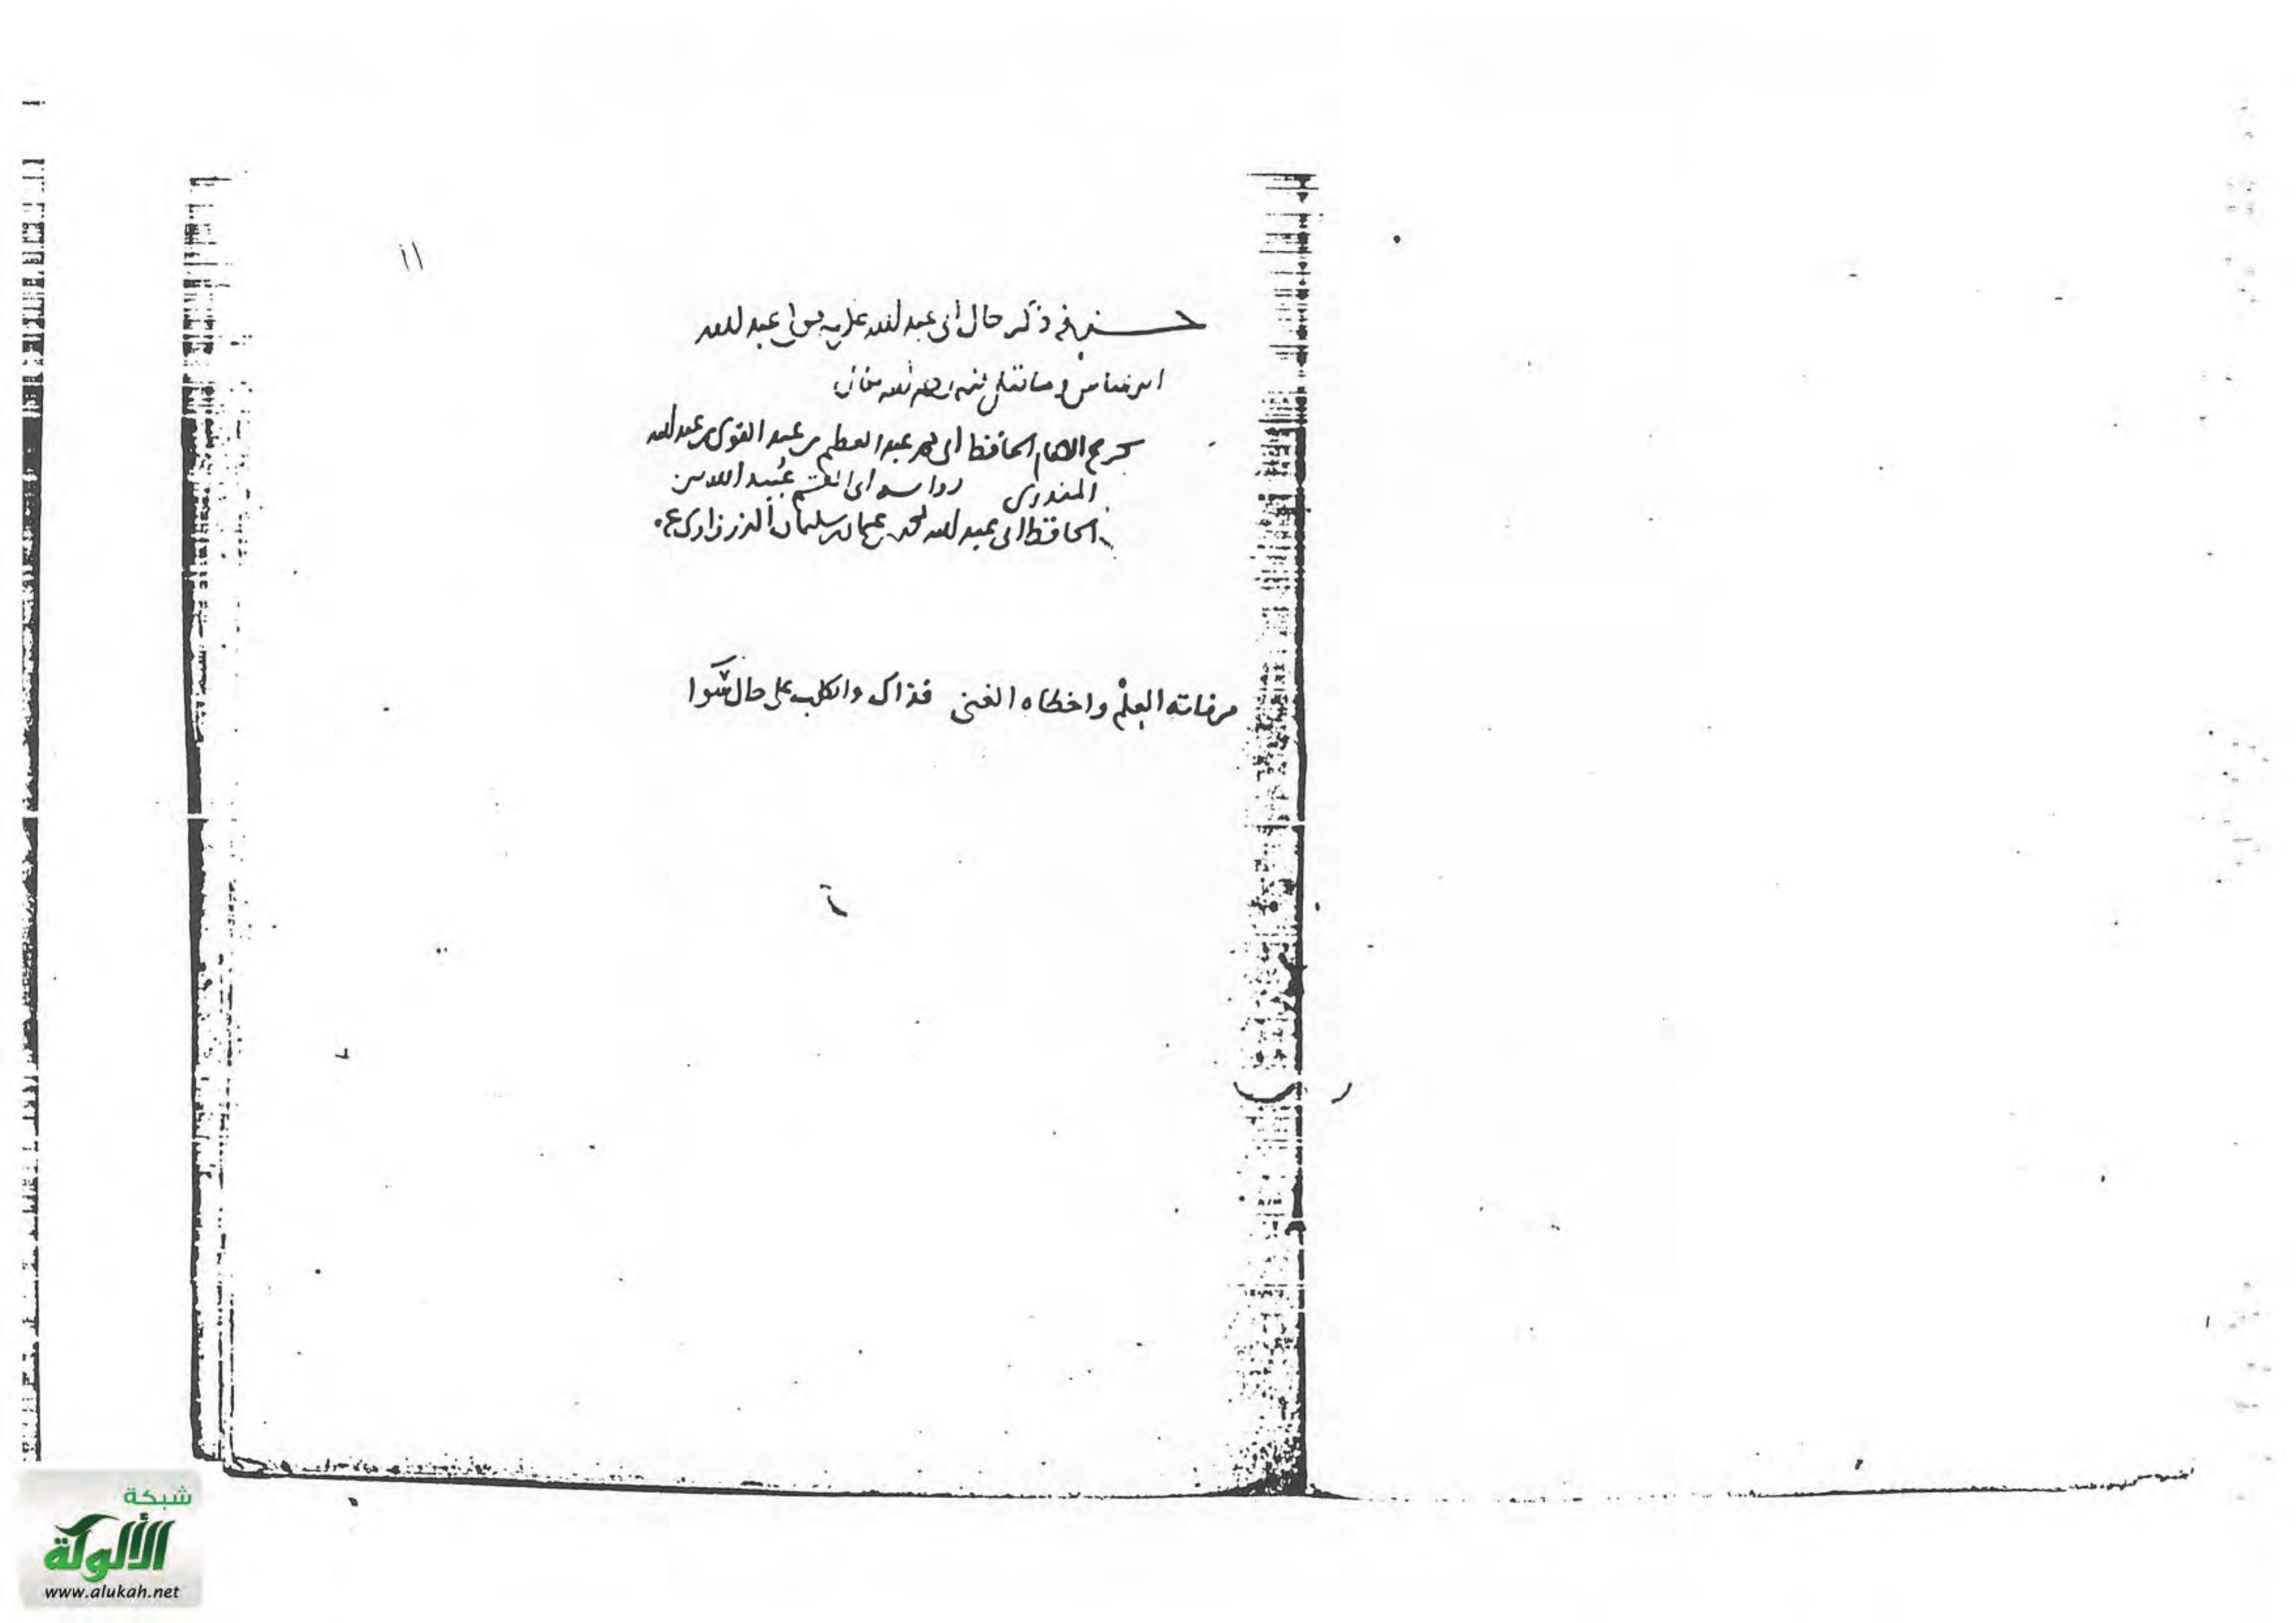 ١١
جزء فيه ذكر حال أبي عبد الله عكرمة مولى عبد الله
ابن عباس وما قيل فيه رحمه الله تعالى
تخريج الامام الحافظ أبي محمد عبد العظيم بن عبد القوي بن عبد الله
المنذري رواية أبي القسم عُبيد الله بن
الحافظ أبي عبد الله محمد بن عثمان بن سليمان الزرزاري
من فاته العلم واخطاه الغنى فذاك والكلب على حال سَوا
شبكة
الألوكة
www.alukah.net